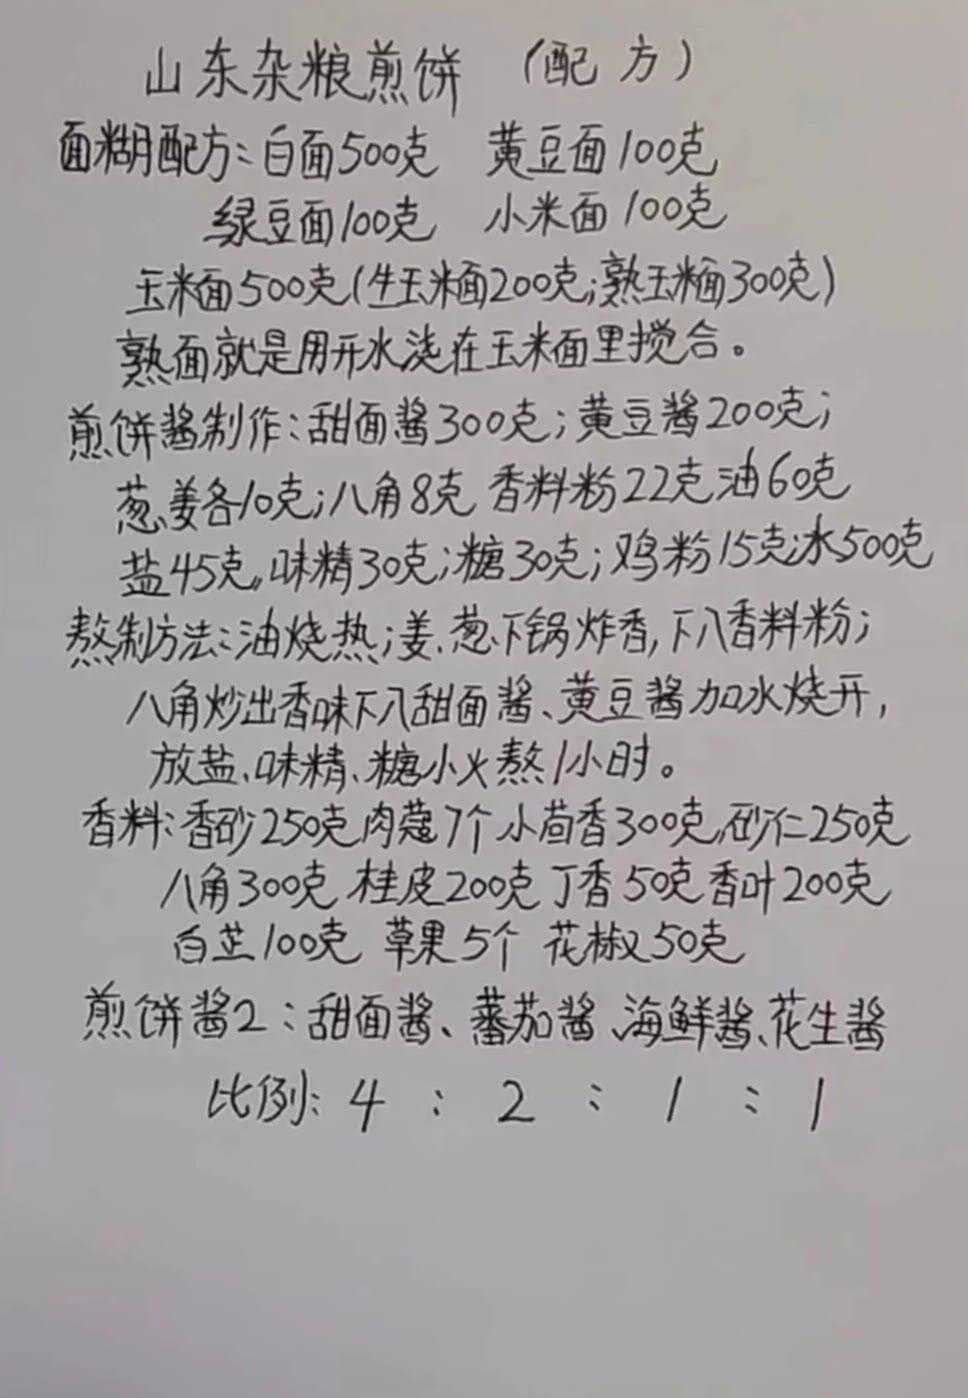 山东杂粮煎饼 (配方)
面糊配方:白面500克 黄豆面100克
绿豆面100克 小米面100克
玉米面500克(生玉米面200克;熟玉米面300克)
熟面就是用开水浇在玉米面里搅合。
煎饼酱制作:甜面酱300克;黄豆酱200克;
葱、姜各10克;八角8克 香料粉22克油60克
盐45克,味精30克;糖30克;鸡粉15克;水500克
熬制方法:油烧热;姜、葱下锅炸香,下八香料粉;
八角炒出香味下八甜面酱、黄豆酱加水烧开,
放盐、味精、糖小火熬1小时。
香料:香砂250克,肉蔻7个 小茴香300克,砂仁250克
八角300克 桂皮200克 丁香50克 香叶200克
白芷100克 草果5个 花椒50克
煎饼酱2:甜面酱、蕃茄酱、海鲜酱、花生酱
比例:4:2:1:1